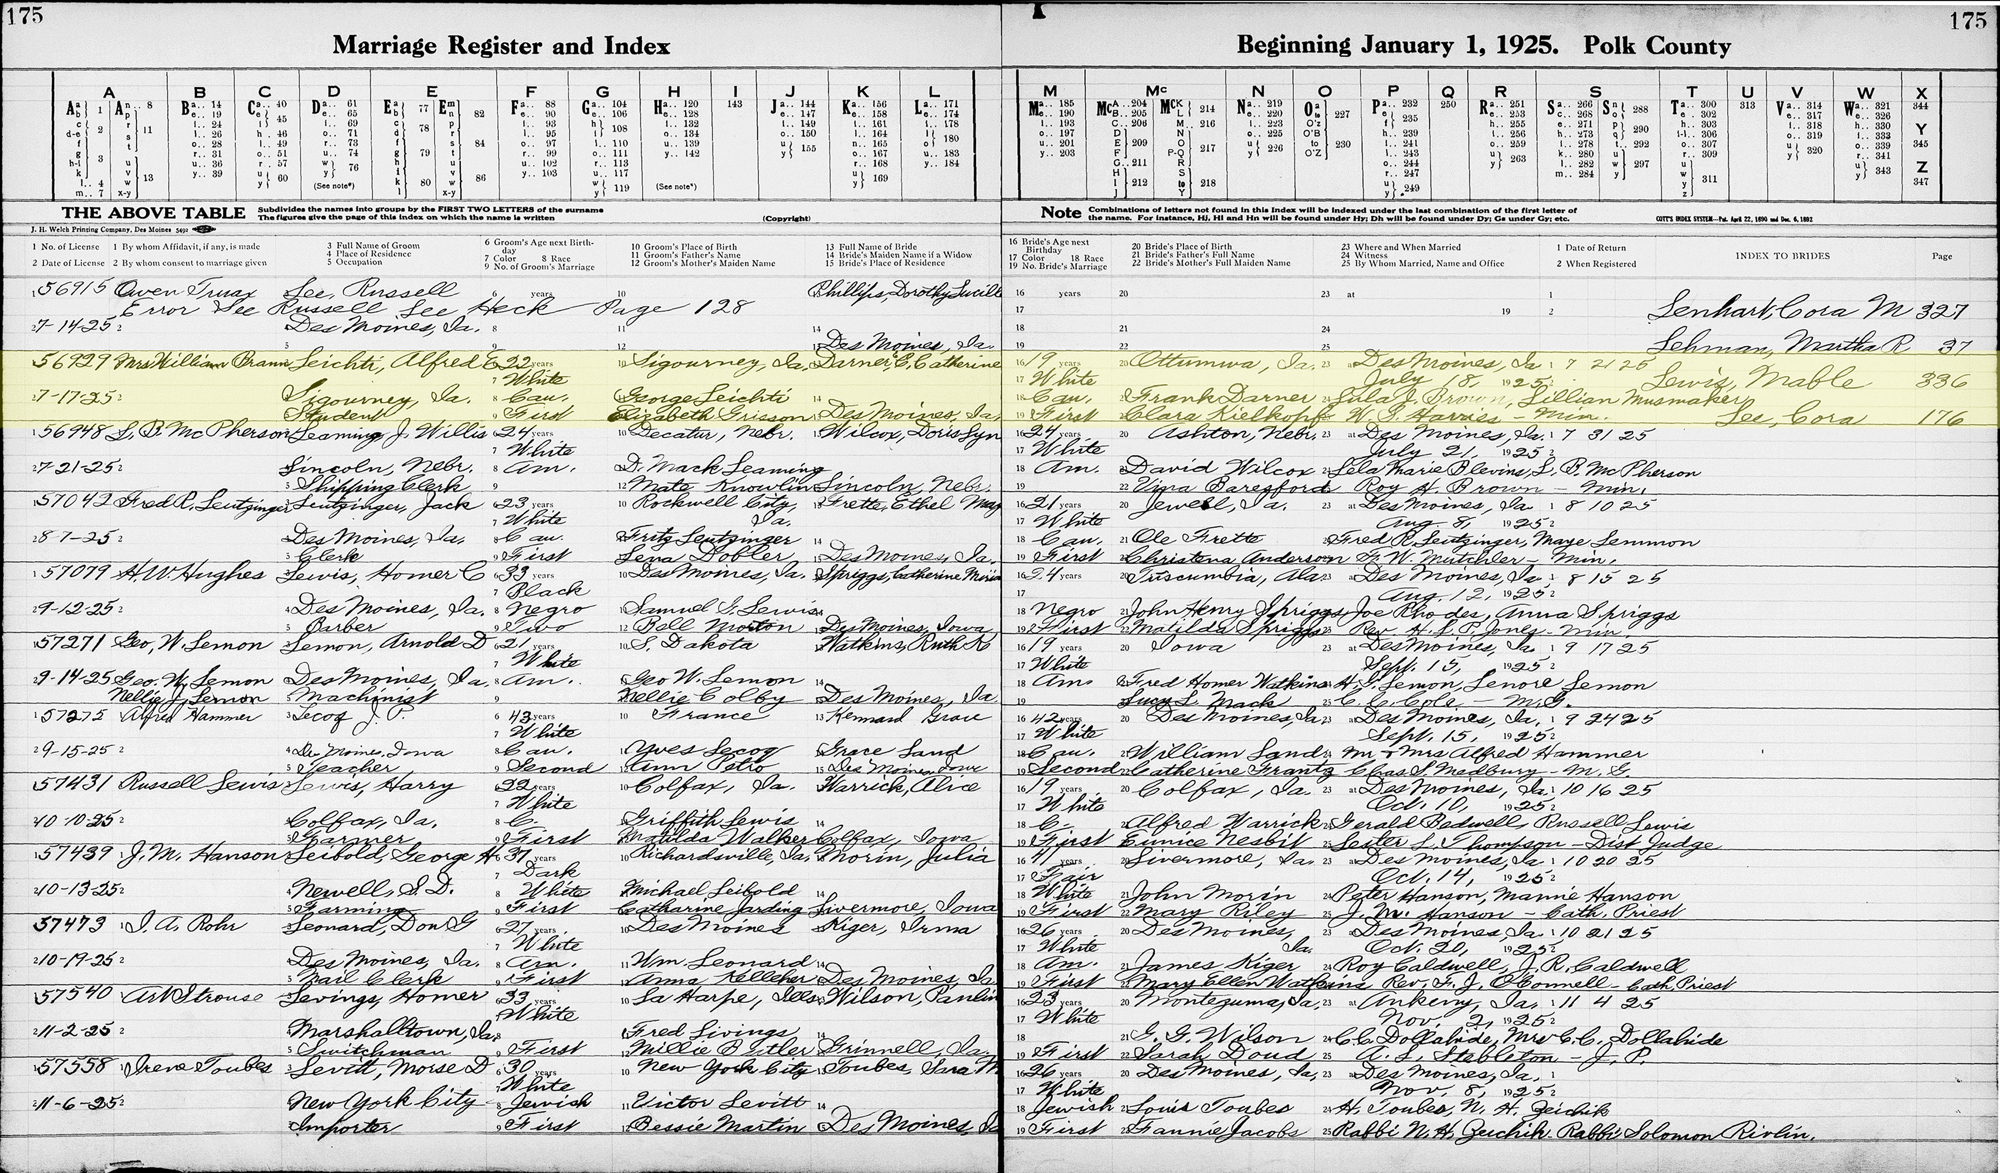 175
175
Marriage Register and Index
Beginning January 1, 1925. Polk County
A B C D E F G H I J K L
M Mc N O P Q R S T U V W X
THE ABOVE TABLE Subdivides the names into groups by the FIRST TWO LETTERS of the surname
The figures give the page of this index on which the name is written (Copyright)
Note Combinations of letters not found in this Index will be indexed under the last combination of the first letter of
the name. For instance, HJ, Hl and Hn will be found under Dy; Dh will be found under Dy; Gs under Gy; etc.
COTT'S INDEX SYSTEM—Pat. April 22, 1890 and Dec. 6, 1892
J. H. Welch Printing Company, Des Moines
1 No. of License 1 By whom Affidavit, if any, is made 3 Full Name of Groom 6 Groom's Age next Birthday 10 Groom's Place of Birth 13 Full Name of Bride
4 Place of Residence 7 Color 8 Race 11 Groom's Father's Name 14 Brides Maiden Name if a Widow
2 Date of License 2 By whom consent to marriage given 5 Occupation 9 No. of Groom's Marriage 12 Groom's Mother's Maiden Name 15 Bride's Place of Residence
16 Bride's Age next Birthday 20 Bride's Place of Birth 23 Where and When Married 1 Date of Return INDEX TO BRIDES Page
17 Color 18 Race 21 Bride's Father's Full Name 24 Witness
19 No. Bride's Marriage 22 Bride's Mother's Full Maiden Name 25 By Whom Married, Name and Office 2 When Registered
56915 Owen Truax Lee, Russell Phillips, Dorothy Lucille
Error See Russell Lee Heck Page 128 Lenhart, Cora M 327
7-14-25 Des Moines, Ia.
Des Moines, Ia. Lehman, Martha R 37
56929 Mrs William Brann Leichti, Alfred E 22 years Sigourney, Ia. Darner, E. Catherine 19 years Ottumwa, Ia. Des Moines, Ia 7 21 25
White White July 18, 1925 Lewis, Mable 336
7-17-25 Sigourney, Ia. Cau. George Leichti Cau. Frank Darner Lula J. Brown, Lillian Musmaker
Student First Elizabeth Grisson Des Moines, Ia. First Clara Kielkopf W. G. Harriss - Min. Lee, Cora 176
56948 L. B. McPherson Leaming, J. Willis 24 years Decatur, Nebr. Wilcox, Doris Lyn 24 years Ashton, Nebr. Des Moines, Ia. 7 31 25
White White July 21, 1925
7-21-25 Lincoln, Nebr. Am. D. Mack Leaming Am. David Wilcox Lela Marie Blevins, L. B. McPherson
Shipping Clerk Mate Knowlin Lincoln, Nebr. Vina Baresford Roy H. Brown - Min.
57042 Fred R. Leutzinger Leutzinger, Jack 23 years Rockwell City, Frette, Ethel May 21 years Jewell, Ia. Des Moines, Ia 8 10 25
White Ia. White Aug 8, 1925
8-7-25 Des Moines, Ia. Cau. Fritz Leutzinger Cau. Ole Frette Fred R. Leutzinger, Maye Lemmon
Clerk First Lena Dobler Des Moines, Ia. First Christena Anderson F. W. Mutchler - Min.
57079 H. W. Hughes Lewis, Homer C 33 years Des Moines, Ia. Spriggs, Catherine 34 years Tuscumbia, Ala Des Moines, Ia 8 15 25
Black Aug. 12, 1925
9-12-25 Des Moines, Ia. Negro Samuel G. Lewis Negro John Henry Spriggs Joe Rhodes, Anna Spriggs
Barber Two Bell Morton Des Moines, Iowa First Matilda Spriggs Rev. H. L. P. Jones - Min.
57271 Geo, W. Lemon Lemon, Arnold D 21 years S. Dakota Watkins, Ruth K 19 years Iowa Des Moines, Ia. 9 17 25
White White Sept. 15, 1925
9-14-25 Geo. W. Lemon Des Moines, Ia. Am. Geo W. Lemon Am. Fred Homer Watkins H. G. Lemon, Lenore Lemon
Nellie J. Lemon Machinist Nellie Colby Des Moines, Ia. Lucy L. Mack C. C. Cole, - M. G.
57275 Alfred Hammer Lecoq J. P. 43 years France Kennard Grace 42 years Des Moines, Ia Des Moines, Ia. 9 24 25
White White Sept. 15, 1925
9-15-25 Des Moines, Iowa Cau. Yves Lecoq Grace Land Cau. William Land Mr + Mrs Alfred Hammer
Teacher Second Ann Petro Des Moines Iowa Second Catherine Frantz Chas. S. Medbury - M. G.
57431 Russell Lewis Lewis, Harry 22 years Colfax, Ia. Warrick, Alice 19 years Colfax, Ia. Des Moines, Ia. 10 16 25
White White Oct. 10, 1925
10-10-25 Colfax, Ia. C. Griffith Lewis C. Alfred Warrick Gerald Bedwell, Russell Lewis
Farmer First Matilda Walker Colfax, Iowa First Eunice Nesbit Lester L. Thompson - Dist Judge
57439 J. M. Hanson Leibold, George H 37 years Richardsville, Ia. Morin, Julia 41 years Livermore, Ia. Des Moines, Ia 10 20 25
Dark Fair Oct. 14, 1925
10-13-25 Newell, S. D. White Michael Leibold White John Morin Peter Hanson, Mannie Hanson
Farming First Catharine Jarding Livermore, Iowa First Mary Riley J. M. Hanson - Cath. Priest
57473 I. A. Rohr Leonard, Don G 27 years Des Moines Kiger, Irma 26 years Des Moines, Des Moines, Ia. 10 21 25
White White Ia. Oct. 20, 1925
10-19-25 Des Moines, Ia. Am. Wm. Leonard Am. James Kiger Roy Caldwell, J. R. Caldwell
Mail Clerk First Anna Kelleher Des Moines, Ia First Mary Ellen Watkins Rev. F. J. O'Connell - Cath Priest
57540 Art Strouse Levings, Homer 33 years La Harpe, Ills. Wilson, Paulin 23 years Montezuma, Ia. Ankeny, Ia. 11 4 25
White White Nov. 2, 1925
11-2-25 Marshalltown, Ia. Fred Livings G. G. Wilson C. C. Dollahide, Mrs C. C. Dollahide
Switchman First Millie Butler Grinnell, Ia. First Sarah Doud A. L. Stableton - J. P.
57558 Irene Toubes Levitt, Morse D 30 years New York City Toubes, Sara M 26 years Des Moines, Ia. Des Moines, Ia.
White White Nov. 8, 1925
11-6-25 New York City Jewish Victor Levitt Jewish Louis Toubes H. Toubes, N. H. Zeichik
Importer First Bessie Martin Des Moines, Ia First Fannie Jacobs Rabbi N. H. Zeichik Rabbi Solomon Rivlin.